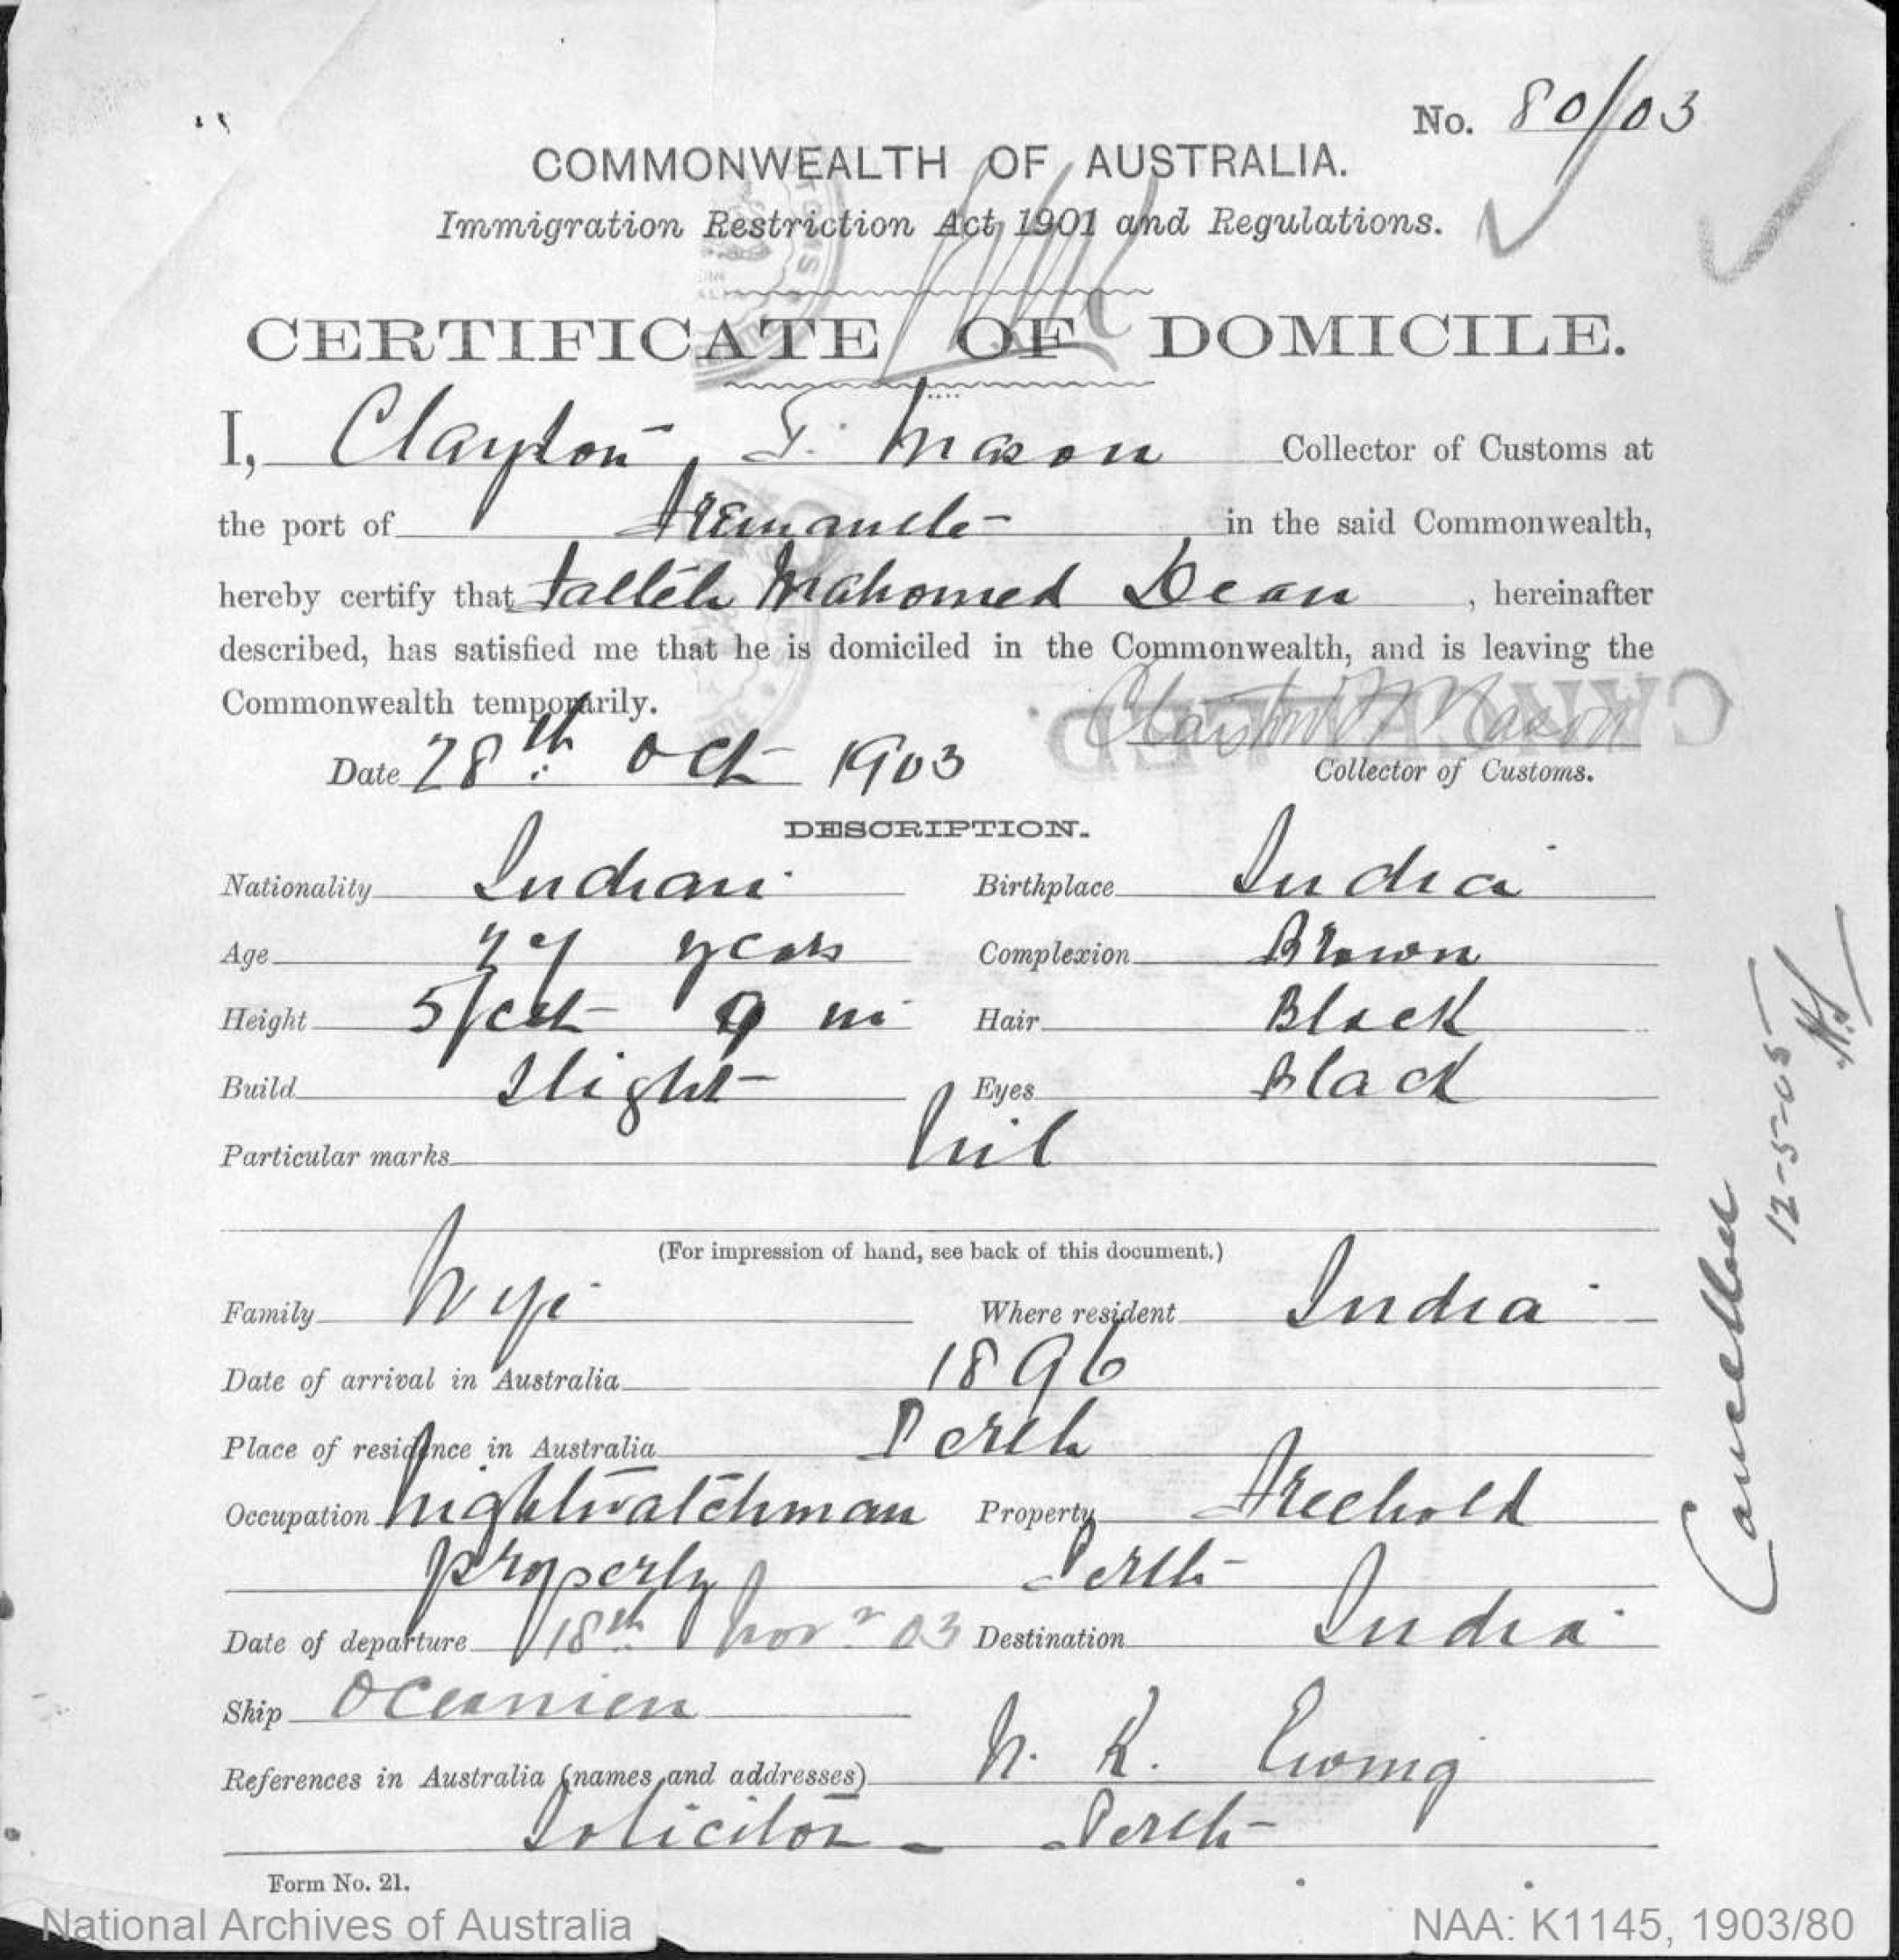 No. 80/03
COMMONWEALTH OF AUSTRALIA.
Immigration Restriction Act 1901 and Regulations.
CERTIFICATE OF DOMICILE.
I, Clayton T. Mason Collector of Customs at
the port of Fremantle in the said Commonwealth,
hereby certify that Fatteh Mahomed Dean, hereinafter
described, has satisfied me that he is domiciled in the Commonwealth, and is leaving the
Commonwealth temporarily.
Clayton T Mason
CANCELLED
Date 28th Oct 1903 Collector of Customs.
DESCRIPTION.
Nationality Indian Birthplace India
Age years Complexion Brown
Height 5 feet 9 in Hair Black
Build Slight Eyes Black
Particular marks Nil
(For impression of hand, see back of this document.)
Family Wife Where resident India
Date of arrival in Australia 1896
Place of residence in Australia Perth
Occupation Nightwatchman Property Freehold
property Perth
Date of departure 18th Novr 03 Destination India
Ship Oceanien
References in Australia (names and addresses) N. K. Ewing
Solicitor - Perth
Form No. 21.
Cancelled
12-5-05
National Archives of Australia
NAA: K1145, 1903/80